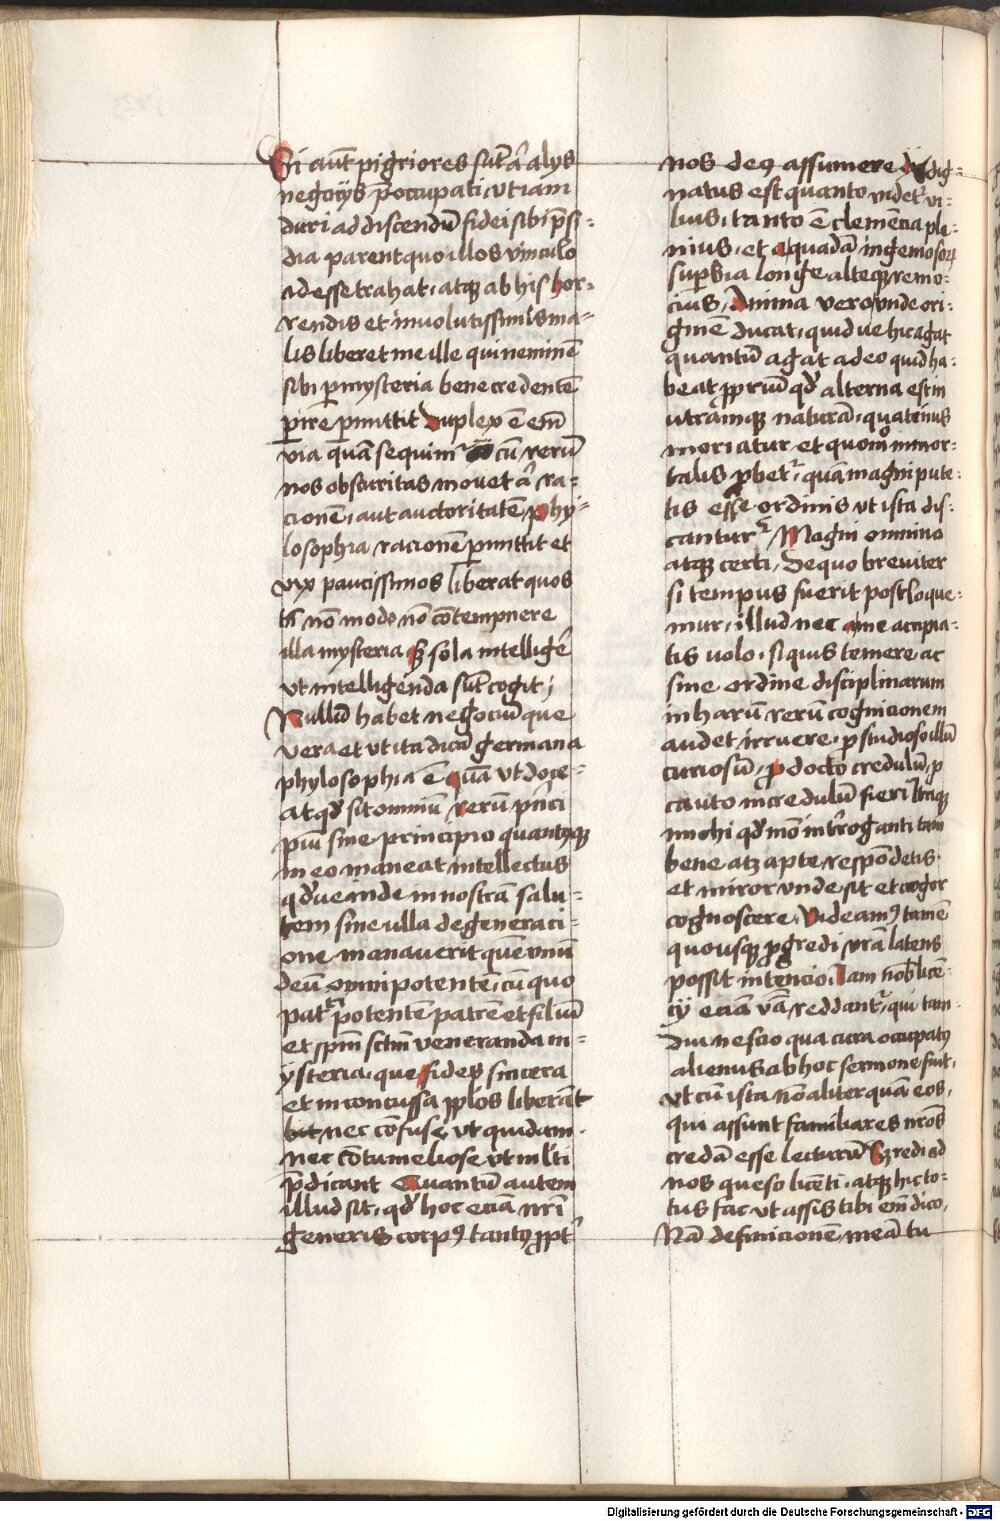 Si aut̄ pigriores sūt a᷑ alijs
negocijs p̄occupati, vt iam
duri ad discendū fidei sibi p̄si-
dia parent quo illos vinculo
ad esse trahat, atq̢ ab his hor-
rendis et involutissimis ma-
lis liberet me ille qui neminē
sibi ꝑ mysteria bene credentē
ꝑire ꝑmittit Duplex ē em̄
via quā sequimr᷑ cū rerū
nos obscuritas movet a᷑ ra-
cionē, aut auctoritatē, phy-
losophia racionē ꝑmittit et
vix paucissimos liberat quos
tn̄ nō modo nō cōtempnere
illa mysteria, sꝫ sola intelligē᷑
vt intelligenda sūt cogit,
Nullū habet negociū que
vera et vt ita dicā germana
phylosophia ē quā vt doce-
at qd᷑ sit omniū rerū prīci
piū sine principio quantꝰq̢
in eo maneat intellectus
qd᷑ ve inde in nostrā salu-
tem sine ulla degeneraci-
one manaverit quē vnū
deū omnipotentē, cū quo
pat᷑ potentē patrē et filiū
et spm̄ sctm̄ veneranda m-
ysteria, que fides sincera
et inconcussa pplos liberāt
bit, nec cōfuse, vt quidam.
nec cōtumeliose vt ml̄ti
p̄dicant Quantū autem
illud sit, qd᷑ hoc eciā nr̄i
generis corpꝰ tantꝰ ꝓpt᷑
nos deꝰ assumere dig-
natus est quanto videtr᷑ vi-
lius, tanto ē clemēcia ple-
nius, et a quadā ingeniosoꝝ
suꝑbia longe alteq̢ remo-
cius, Anima vero vnde ori-
ginē ducat, quid ve hic agat
quantū agat adeo quid ha-
beat ꝓpriū qd᷑ alterna est in
utramq̢ naturā, quatinus
moriatur et quomō inmor-
talis ꝓbetr᷑, quā magni pute-
tis esse ordinis vt ista dis-
cantur Magni omnino
atq̢ certi, De quo breviter
si tempus fuerit post loque-
mur, illud nec a me accipia-
tis volo, si quis temere ac
sine ordine disciplinarum
in harū rerū cognicionem
audet irruere, ꝓ studioso illū
curiosū, ꝓ docto credulū, ꝓ
cauto incredulū fieri Itaq̢
michi qd᷑ mō int̄roganti tam
bene atq̢ apte respōdetis
et miror vnde sit et cogor
cognoscere, Videamꝰ tamē
quousq̢ ꝓgredi vr̄a latens
possit intencio, Iam nob̄ licē-
cij eciā vb̄a reddantr᷑, qui tam
diu nescio qua cura occupatꝰ
alienus ab hoc sermone fuit,
vt cū ista nō aliter quā eos,
qui assunt familiares nr̄os
credā esse lecturū Sꝫ redi ad
nos queso licēti, atq̢ hic to-
tus fac vt assis tibi em̄ dico,
Nā definicionē meā tu
Digitalisierung gefördert durch die Deutsche Forschungsgemeinschaft - DFG